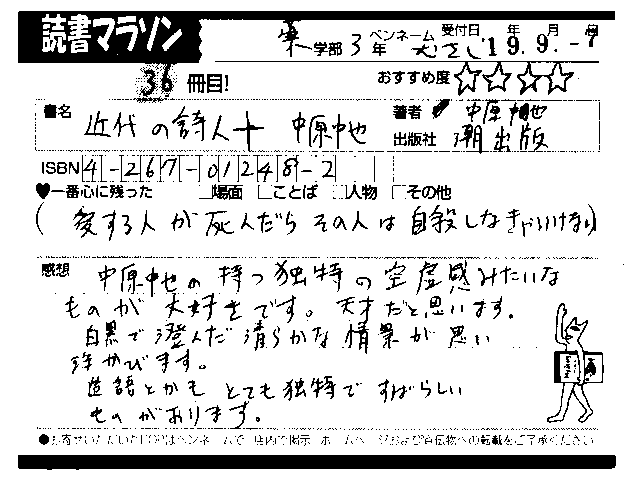 読書マラソン
薬学部3年 ペンネーム むさし 受付日 '19年9月-7
36冊目! おすすめ度☆☆☆☆
書名 近代の詩人十 中原中也 著者 中原中也
出版社 潮出版
ISBN 4-267-01248-2
♥一番心に残った □場面 □ことば □人物 □その他
(愛する人が死んだら その人は自殺しなきゃいけない)
感想 中原中也の持つ独特の空虚感みたいな
ものが大好きです。天才だと思います。
白黒で澄んだ清らかな情景が思い
浮かびます。
造語とかも とても独特ですばらしい
ものがあります。
●お寄せいただいたPOPはペンネームで 店内で掲示 ホームページおよび宣伝物への転載をご了承ください